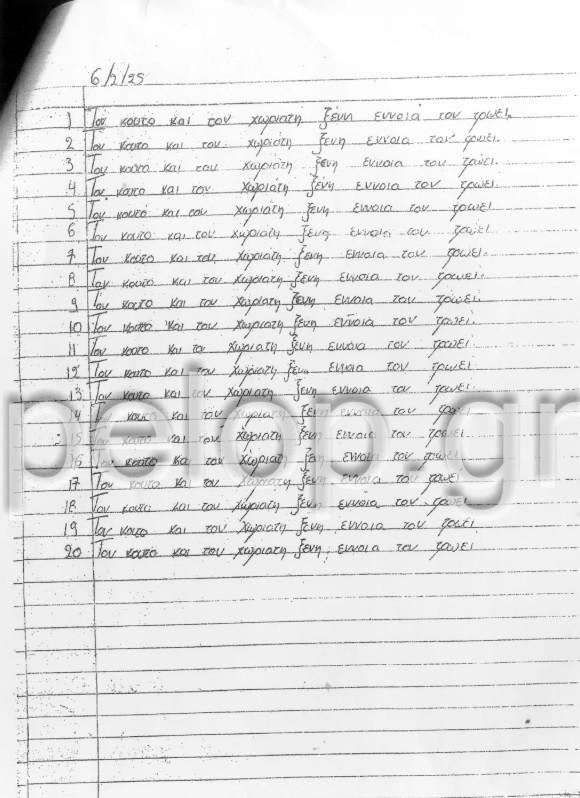 6/2/25
1 Τον κουτο και τον χωριατη ξένη εννοιά τον τρωει.
2 Τον κουτο και τον χωριάτη ξενη εννοια τον τρωει.
3 Τον κουτο και τον χωριατη ξενη εννοια του τρωει.
4 Τον κουτο και τον χωριατη ξενη εννοια τον τρωει.
5 Τον κουτό και τον χωριατη ξενη εννοια τον τρωει.
6 Τον κουτο και τον χωριατη ξενη εννοια τον τρωει.
7 Τον κουτο και τον χωριατη ξενη εννοια τον τρωει.
8 Τον κουτο και τον χωριατη ξενη εννοια τον τρωει.
9 Τον κουτο και τον χωριατη ξενη εννοια τον τρωει
10 Τον κουτο και τον χωριατη ξενη εννοια τον τρωει.
11 Τον κουτο και το χωριατη ξενη εννοια τον τρωει
12 Τον κουτο και τον χωριατη ξενη εννοια τον τρωει
13 Τον κουτο και τον χωριατη ξενη εννοια τον τρωει
14 κουτο και τον χωριατη ξενη εννοια τον τρωει
15 Τον κουτο και τον χωριατη ξενη εννοια τον τρωει
16 Τον κουτο και τον χωριατη ξενη εννοια τον τρωει
17 Τον κουτο και τον χωριατη ξενη εννοια τον τρωει
18 Τον κουτο και τον χωριατη ξενη εννοια τον τρωει
19 Τον κουτο και τον χωριατη ξενη εννοια τον τρωει
20 Τον κουτο και τον χωριατη ξενη εννοια τον τρωει
pelop.gr